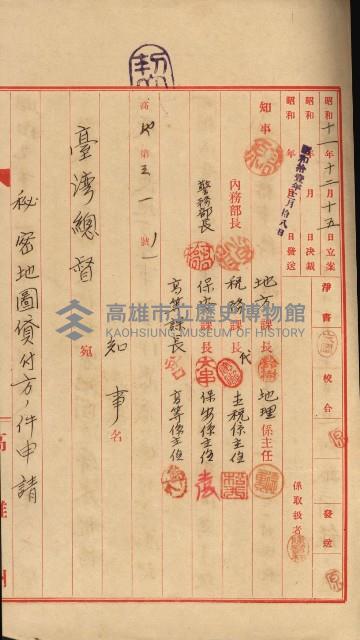 昭和十一年十二月十五日立案
昭和 年 月 日決裁
昭和 年 月 日發送
昭和拾壹年 月拾八日
淨書
校合
發送
係取扱者
知事
內務部長
警務部長
地方課長
稅務課長
保安課長
高等課長
地理係主任
土稅係主任
保安係主任
高等係主任
高地第三一一號ノ一
知事名
臺灣總督宛
秘密地圖貸付方ノ件申請
高雄州
高雄市立歷史博物館
KAOHSIUNG MUSEUM OF HISTORY